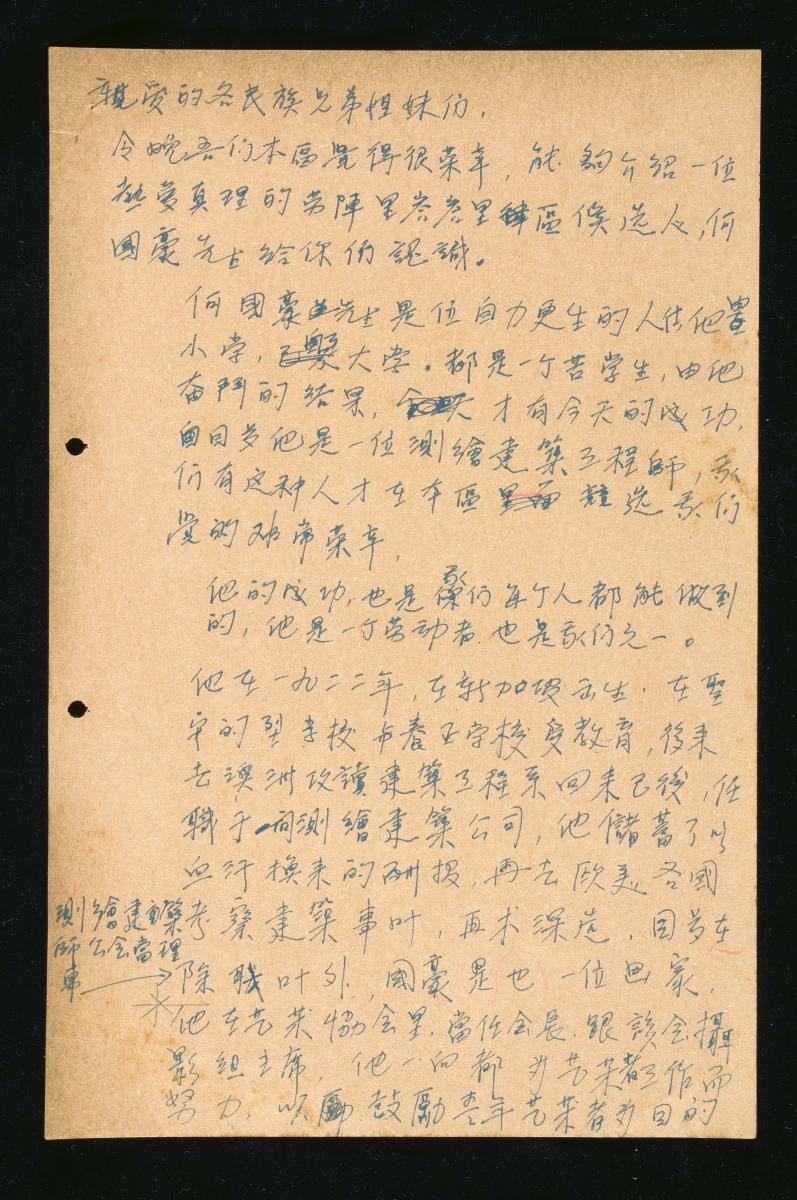 親爱的各民族兄弟姐妹们,
今晚吾们本區覺得很荣幸,能夠介紹一位
热爱真理的劳陣里峇峇里区區候选人,何
國豪先生給你们認識。
何國豪先生是位自力更生的人,他
小学,大学。都是一个苦学生,由他
奋鬥的結果,才有今天的成功,
目前他是一位測繪建築工程師,我
们有这种人才在本區競选我们
覺的非常荣幸,
他的成功,也是我们每个人都能做到
的,他是一个劳动者,也是我们之一。
他在一九二二年,在新加坡出生,在聖
安的列学校与養正学校受教育,後来
去澳洲攻讀建築工程系回来已後,任
職于一间測繪建築公司,他儲蓄了以
血汗換来的酬报,再去欧美各國
考察建築事叶,再求深造,因为在
測繪建築
師公会當理
事
除職叶外,國豪是也一位画家,
他在艺术協会里,當任会長,跟該会攝
影組主席,他一向都为艺术者工作而
努力,以鼓励青年艺术者为目的